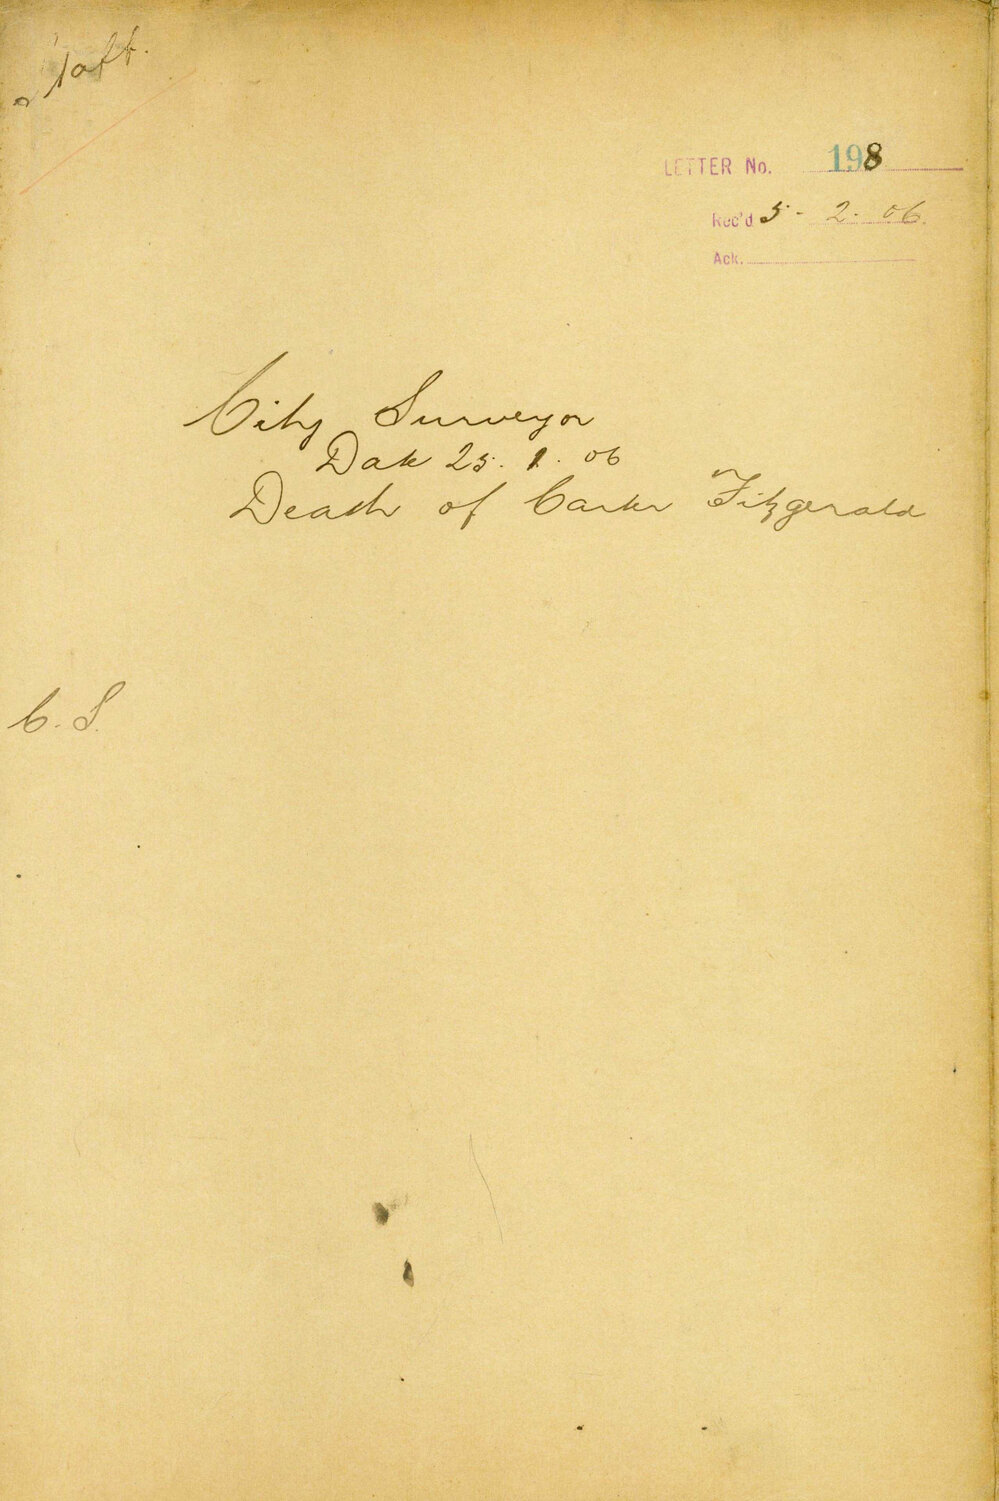 Staff.
LETTER No. 198
Rec'd 5 - 2. 06.
Ack.
City Surveyor
Date 25. 1. 06
Death of Carter Fitzgerald
C. S.